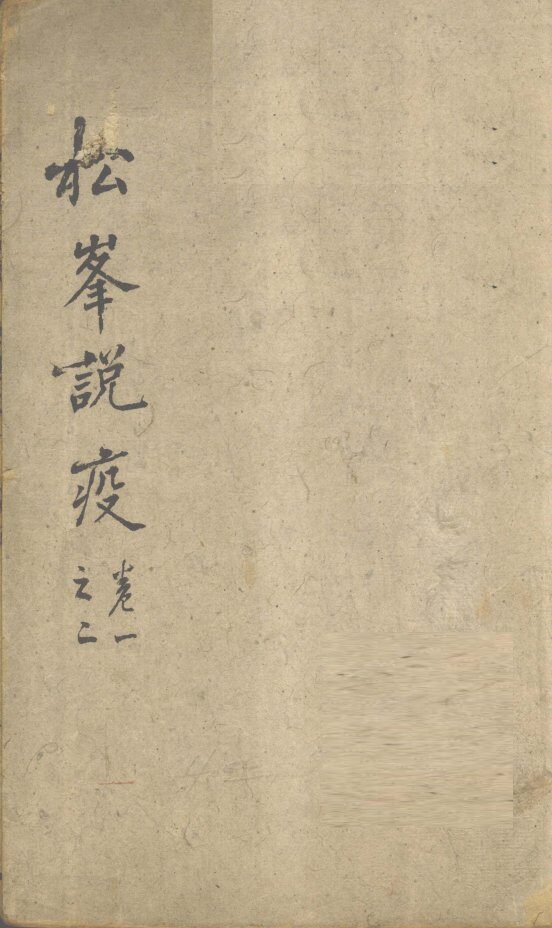 松峯說疫
卷一
之二